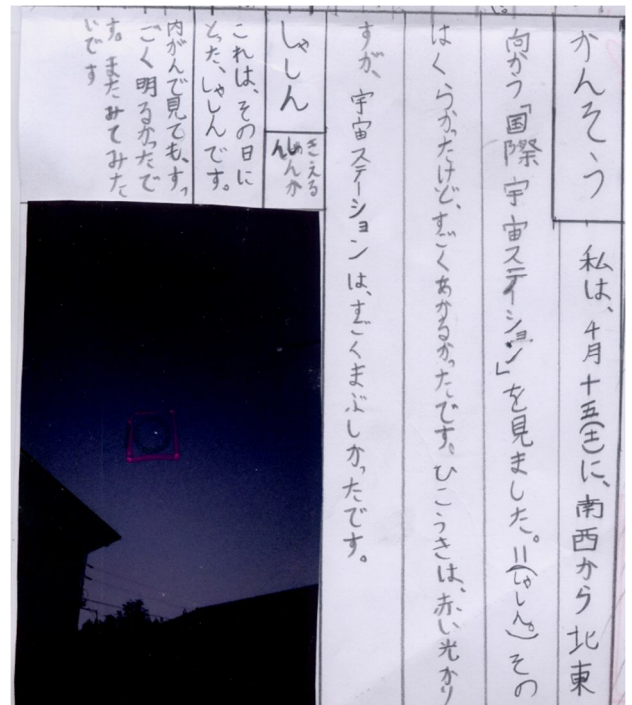 かんそう
私は、4月十五(土)に、南西から北東
向かう「国際宇宙ステイション」を見ました。=(しゃしん。)その
はくらかったけど、すごくあかるかったです。ひこうきは、赤い光かり
すが、宇宙ステーションは、すごくまぶしかったです。
しゃしん
きえる
これは、その日に
とった、しゃしんです。
内がんで見ても、すっ
ごく明るかったで
す。またみてみた
いです